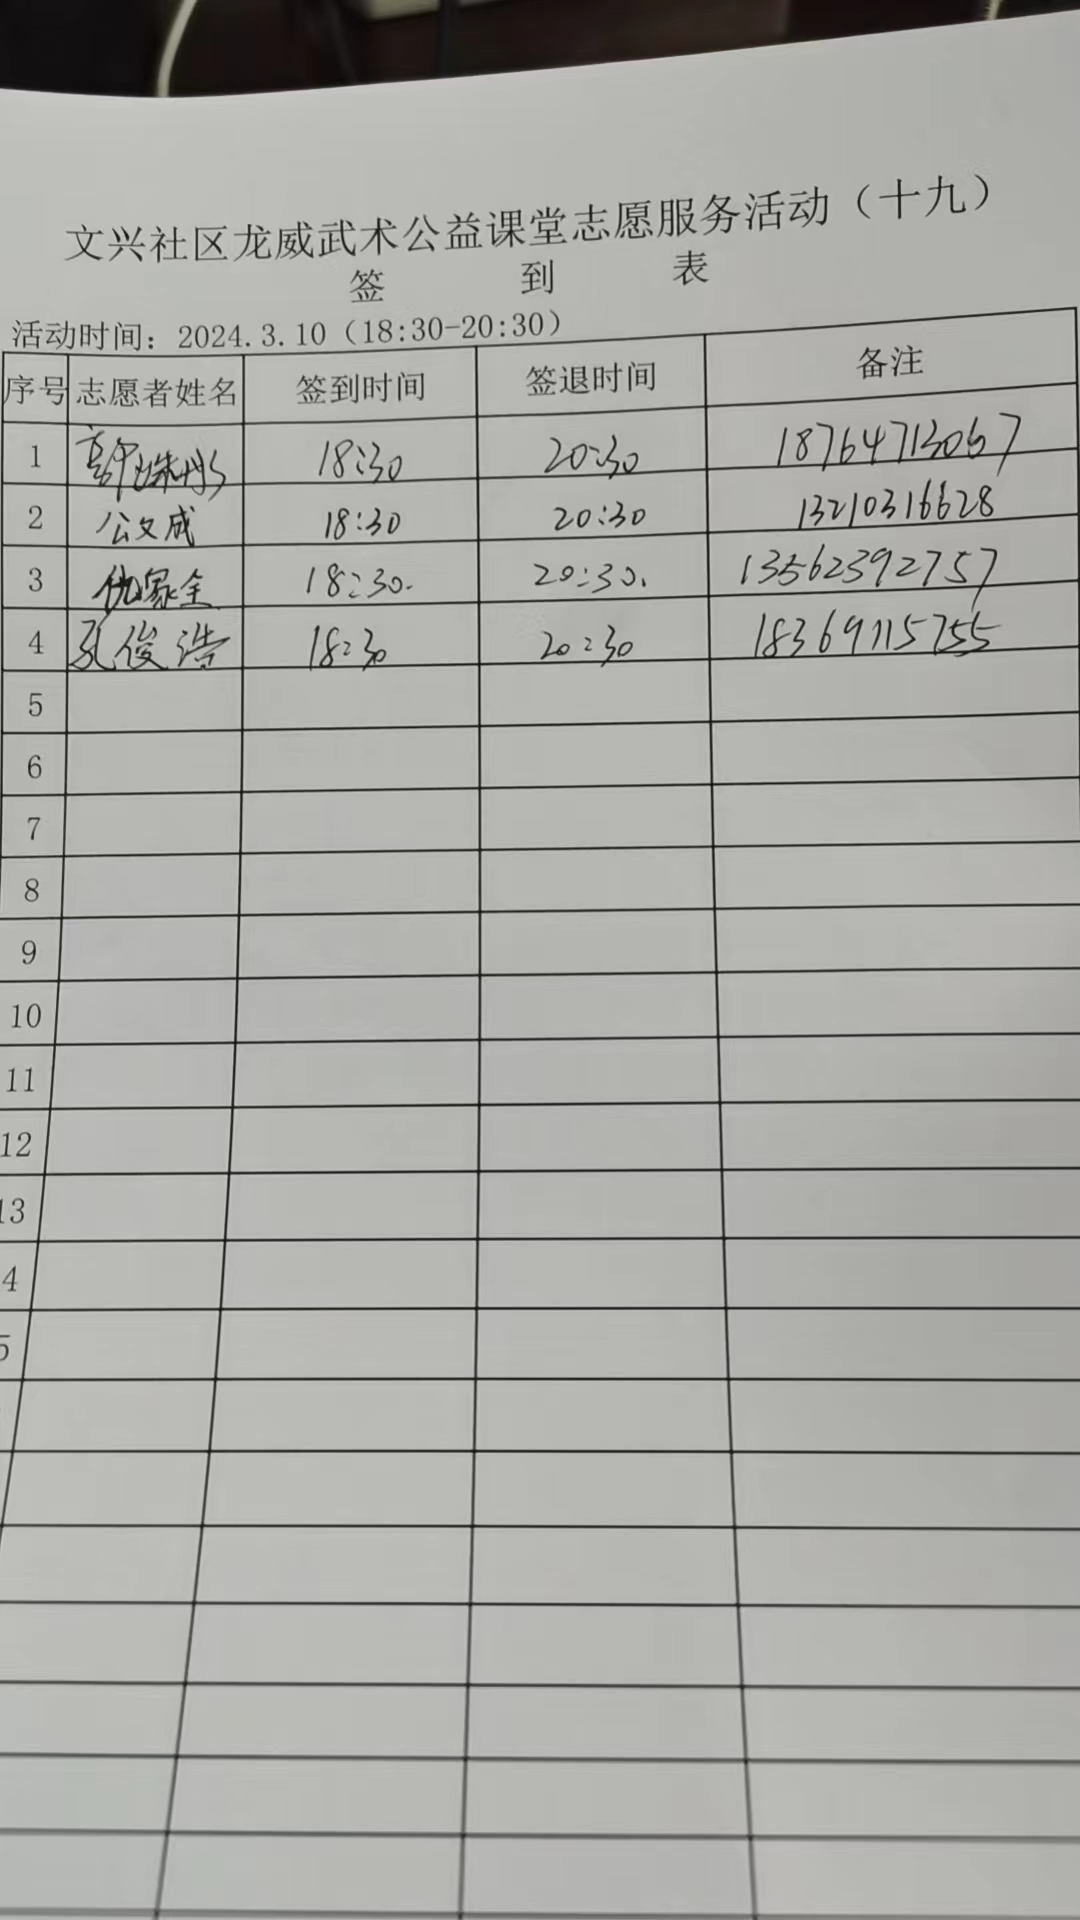 文兴社区龙威武术公益课堂志愿服务活动（十九）
签 到 表
活动时间：2024.3.10（18:30-20:30）
序号 志愿者姓名 签到时间 签退时间 备注
1 18:30 20:30 18764713067
2 公文成 18:30 20:30 13210316628
3 仇家全 18:30. 20:30. 13562392757
4 孔俊浩 18:30 20:30 18369115755
5
6
7
8
9
10
11
12
13
4
5